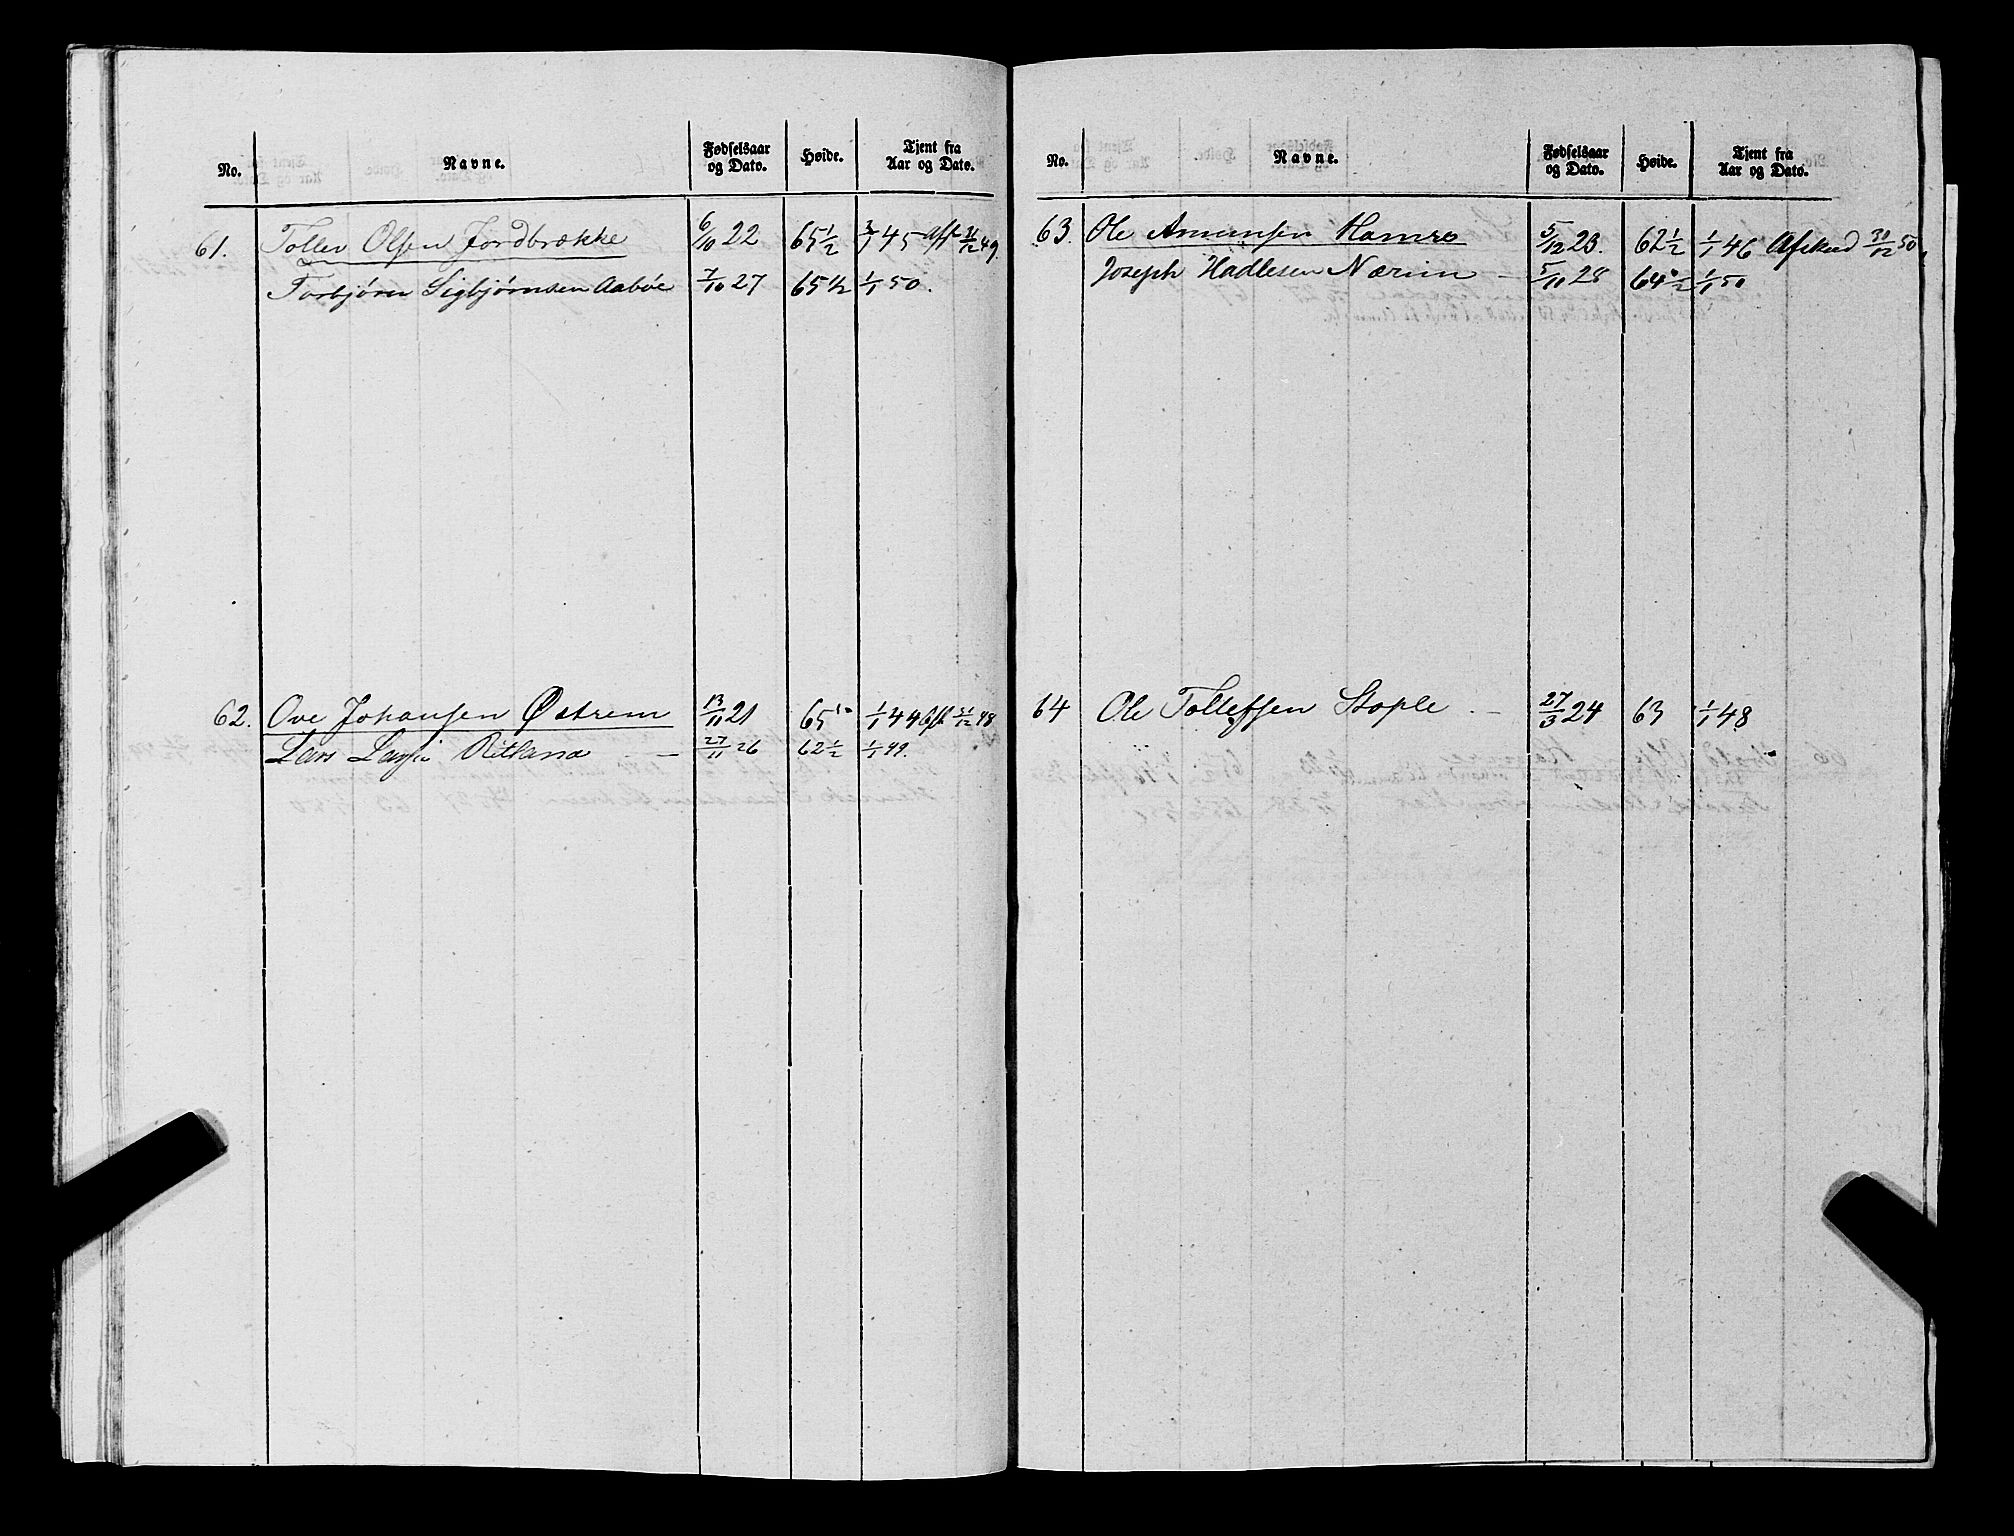 No. Navne. Fødselsaar og Dato. Høide. Tjent fra Aar og Dato.
61. Tollev Olsen Jordbrække 6/10 22 65 1/2 45 Afsk 31/12 49.
Torbjørn Sigbjørnsen Aabøe 7/10 27 65 1/2 1/1 50.
62. Ove Johansen Østrem 13/11 21 65 1/1 44 Afsk 31/12 48
Lars Larsen Ritland 27/11 26 62 1/2 1/1 49.
No. Navne. Fødselsaar og Dato. Høide. Tjent fra Aar og Dato.
63. Ole Amunsen Hamre 5/12 23. 62 1/2 1/1 46 Afsked 31/12 50
Joseph Hadlesen Nærim 5/11 28 64 1/2 1/1 50
64 Ole Tollefsen Stople 27/3 24 63 1/1 48